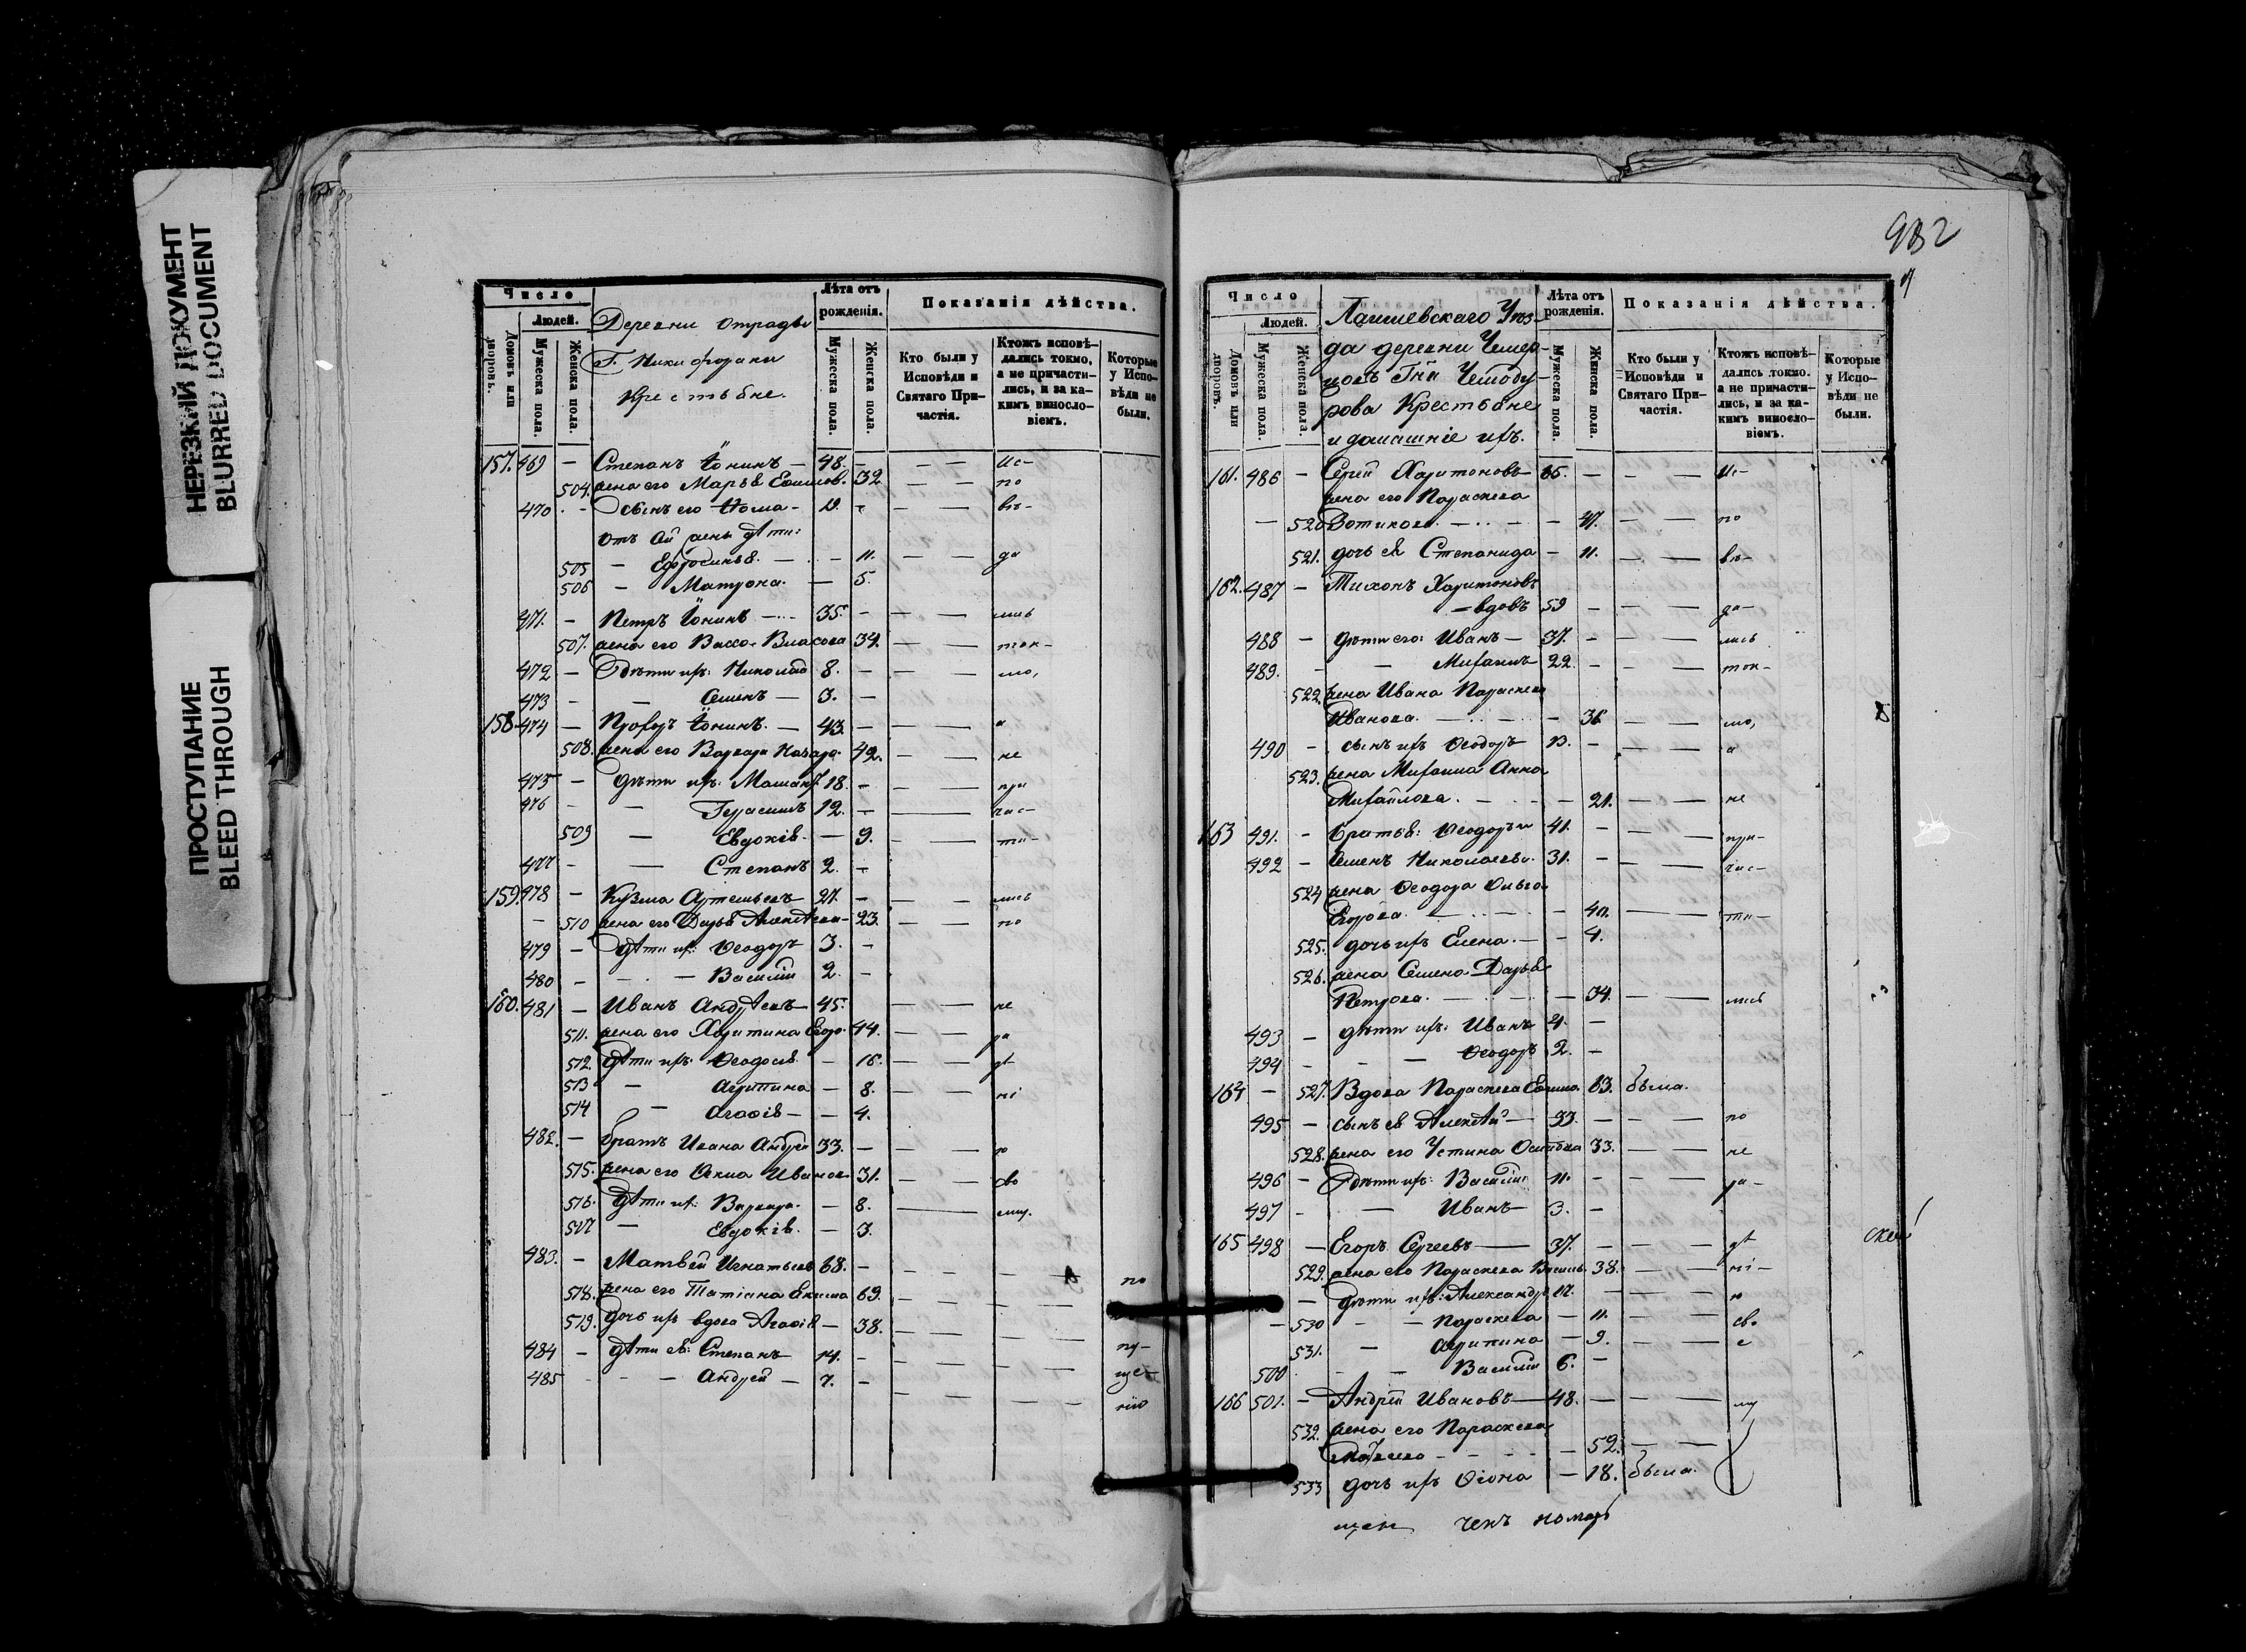 НЕРЕЗКИЙ ДОКУМЕНТ
BLURRED DOCUMENT
ПРОСТУПАНИЕ
BLEED THROUGH
Число
Людей.
Домовъ или дворовъ.
Мужеска пола.
Женска пола.
Деревни Отрады
Г. Никифораки
Крестьяне.
Лѣта отъ рожденія.
Мужеска пола.
Женска пола.
Показанія дѣйства.
Кто были у Исповѣди и Святаго Причастія.
Ктожъ исповѣдались токмо, а не причастились, и за какимъ винословіемъ.
Которые у Исповѣди не были.
157. 469 — Степанъ Іонинъ — 48. — — — Ис-
504. жена его Марья Ефимов. 32 — — по
470 — Сынъ его Ѳома — — — вѣ-
отъ ей жены дѣти:
505 — Ефросинья — 11. — — да
506 — Матрона. — 5.
471. — Петръ Іонинъ — 35. — — — лись
507. жена его Васса Власова 34. — — ток-
472 — Дѣти ихъ: Николай 8. — — — мо,
473 — — Семенъ — 3. —
158 474 — Прохоръ Іонинъ. — 43. — — — а
508. жена его Варвара Назаро. 42. — — не
475 — дѣти ихъ: 18. — — — при
476 — — Герасимъ 12. — — час-
509 — Евдокія — 9. — — ти-
477 — — Степанъ 2. —
159. 478 — Кузма Артемьевъ 27. — — — лись
— 510 жена его Дарья Алексѣева 23. — — по
479 — Дѣти их: Ѳеодоръ 3. —
480 — — Василій 2. —
160. 481 — Иванъ Андреевъ 45. — — не
511. жена его Харитина Егор. 44. — — ра
512. Дѣти ихъ: Ѳеодосія — 16. — — дѣ
513 — Агрипина — 8. — — ні
514 — Агафія — — 4.
482. — братъ Ивана Андрей 33. — — — ю
515. жена его Ѳекла Иванов. 31. — — сво
516. Дѣти их: Варвара. — 8. — ему.
517 — Евдокія. — 3.
483. — Матвѣй Игнатьевъ 68. — — — — по
518. жена его Татіана Екима 69. — — —
519. Дочь ихъ вдова Агафія — 38. — — —
484 — Дѣти ея: Степанъ 14. — — — — пу-
485 — — Андрей — 7. — — — — ще-
нію
Число
Людей.
Домовъ или дворовъ.
Мужеска пола.
Женска пола.
Лаишевскаго Уѣз-
да деревни
Гна Чемоду-
рова Крестьяне
и домашніе ихъ.
Лѣта отъ рожденія.
Мужеска пола.
Женска пола.
Показанія дѣйства.
Кто были у Исповѣди и Святаго Причастія.
Ктожъ исповѣдались токмо. а не причастились, и за какимъ винословіемъ.
Которые у Исповѣди не были.
161. 486 — Сергѣй Харитоновъ — — — Ис-
жена его Параскева
— 520 — 47. — — по
521. дочь ея Степанида — 11. — — вѣ-
162. 487 — Тихонъ Харитоновъ
— вдовъ 59 — — — да-
488 — Дѣти его: Иванъ — 37. — — — лись
489. — — Михаилъ 22. — — — ток-
522 жена Ивана Параскева
Иванова. — 36 — — мо,
490 — сынъ ихъ Ѳеодоръ 13. — — — а
523. жена Михаила Анна
Михайлова. — 21. — — не
163 491. — братья: Ѳеодоръ и 41. — — — при-
492 — Семенъ Николаевы. 31. — — — час-
524 жена Ѳеодора Ольга
Егорова. — 40. — ти-
525. дочь ихъ Елена. — 4.
526. жена Семена Дарья
Петрова. — 34. — — лись
493 — дѣти ихъ: Иванъ 4. —
494 — — Ѳеодоръ 2. —
164 — 527. Вдова Параскева Ефима. 63. была.
495 — сынъ ея Алексѣй — 33. — — — по
528. жена его Устина Осипова 33. — — не
496 — Дѣти ихъ: Василій 11. — — — ра-
497 — — Иванъ 3. —
165 498 — Егоръ Сергеевъ — 37. — — — дѣ
529. жена его Параскева Васильев. 38. — — ні-
— дѣти ихъ: Александръ — — ю
— 530 — — Параскева — 11. — — сво
531. — Агрипина — 9. — — е
500 — Василій 6. —
166 501. — Андрей Ивановъ — 48. — — — му
532. жена его Параскева
— 52. — —
533 дочь ихъ — 18. была.